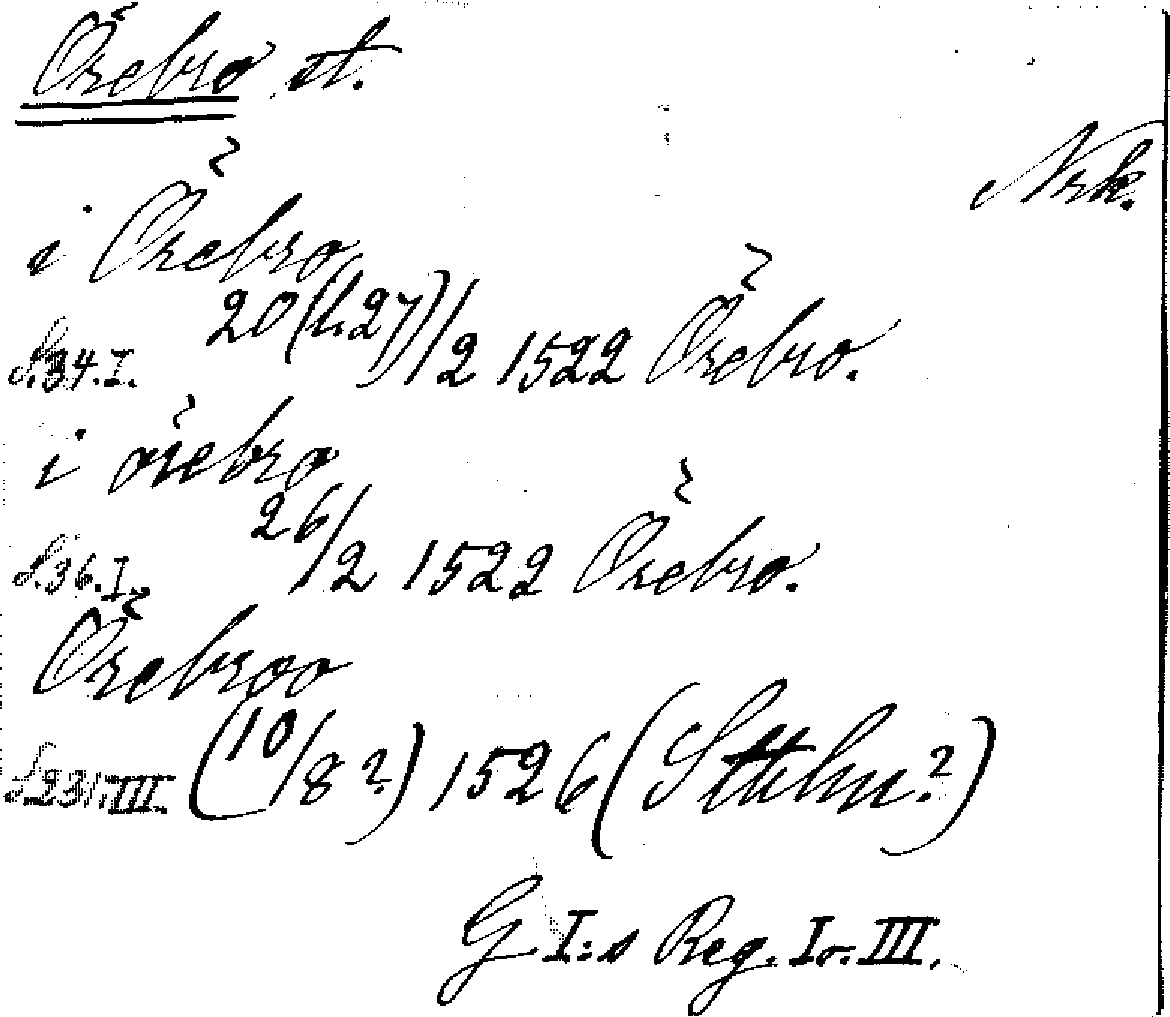 Örebro st.
Nrk.
i Örebro
S. 34. I. 20 (l. 27)/2 1522 Örebro.
i örebro
S. 36. I. 26/2 1522 Örebro.
Örebroo
S. 231. III. (10/8?) 1526 (Sthlm?)
G I:s Reg. I o. III.